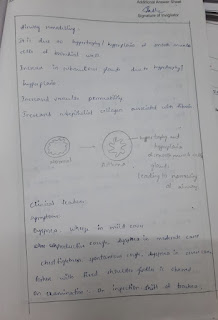 Additional Answer Sheet
Signature of Invigilator
Airway remodelling
It is due to hypertrophy/hyperplasia of smooth muscle
cells of bronchial wall
Increase in submucous glands due to hypertrophy/
hyperplasia
Increased vascular permeability
Increased subepithelial collagen associated with fibrosis
hypertrophy and
hyperplasia
of smooth muscle and
glands
normal
Asthma
leading to narrowing
of airway
Clinical features
symptoms
Dyspnea, wheeze in mild cases
productive cough, dyspnea in moderate cases
chest tightness cough, dyspnea in severe cases
On examination - On inspection shift of trachea,